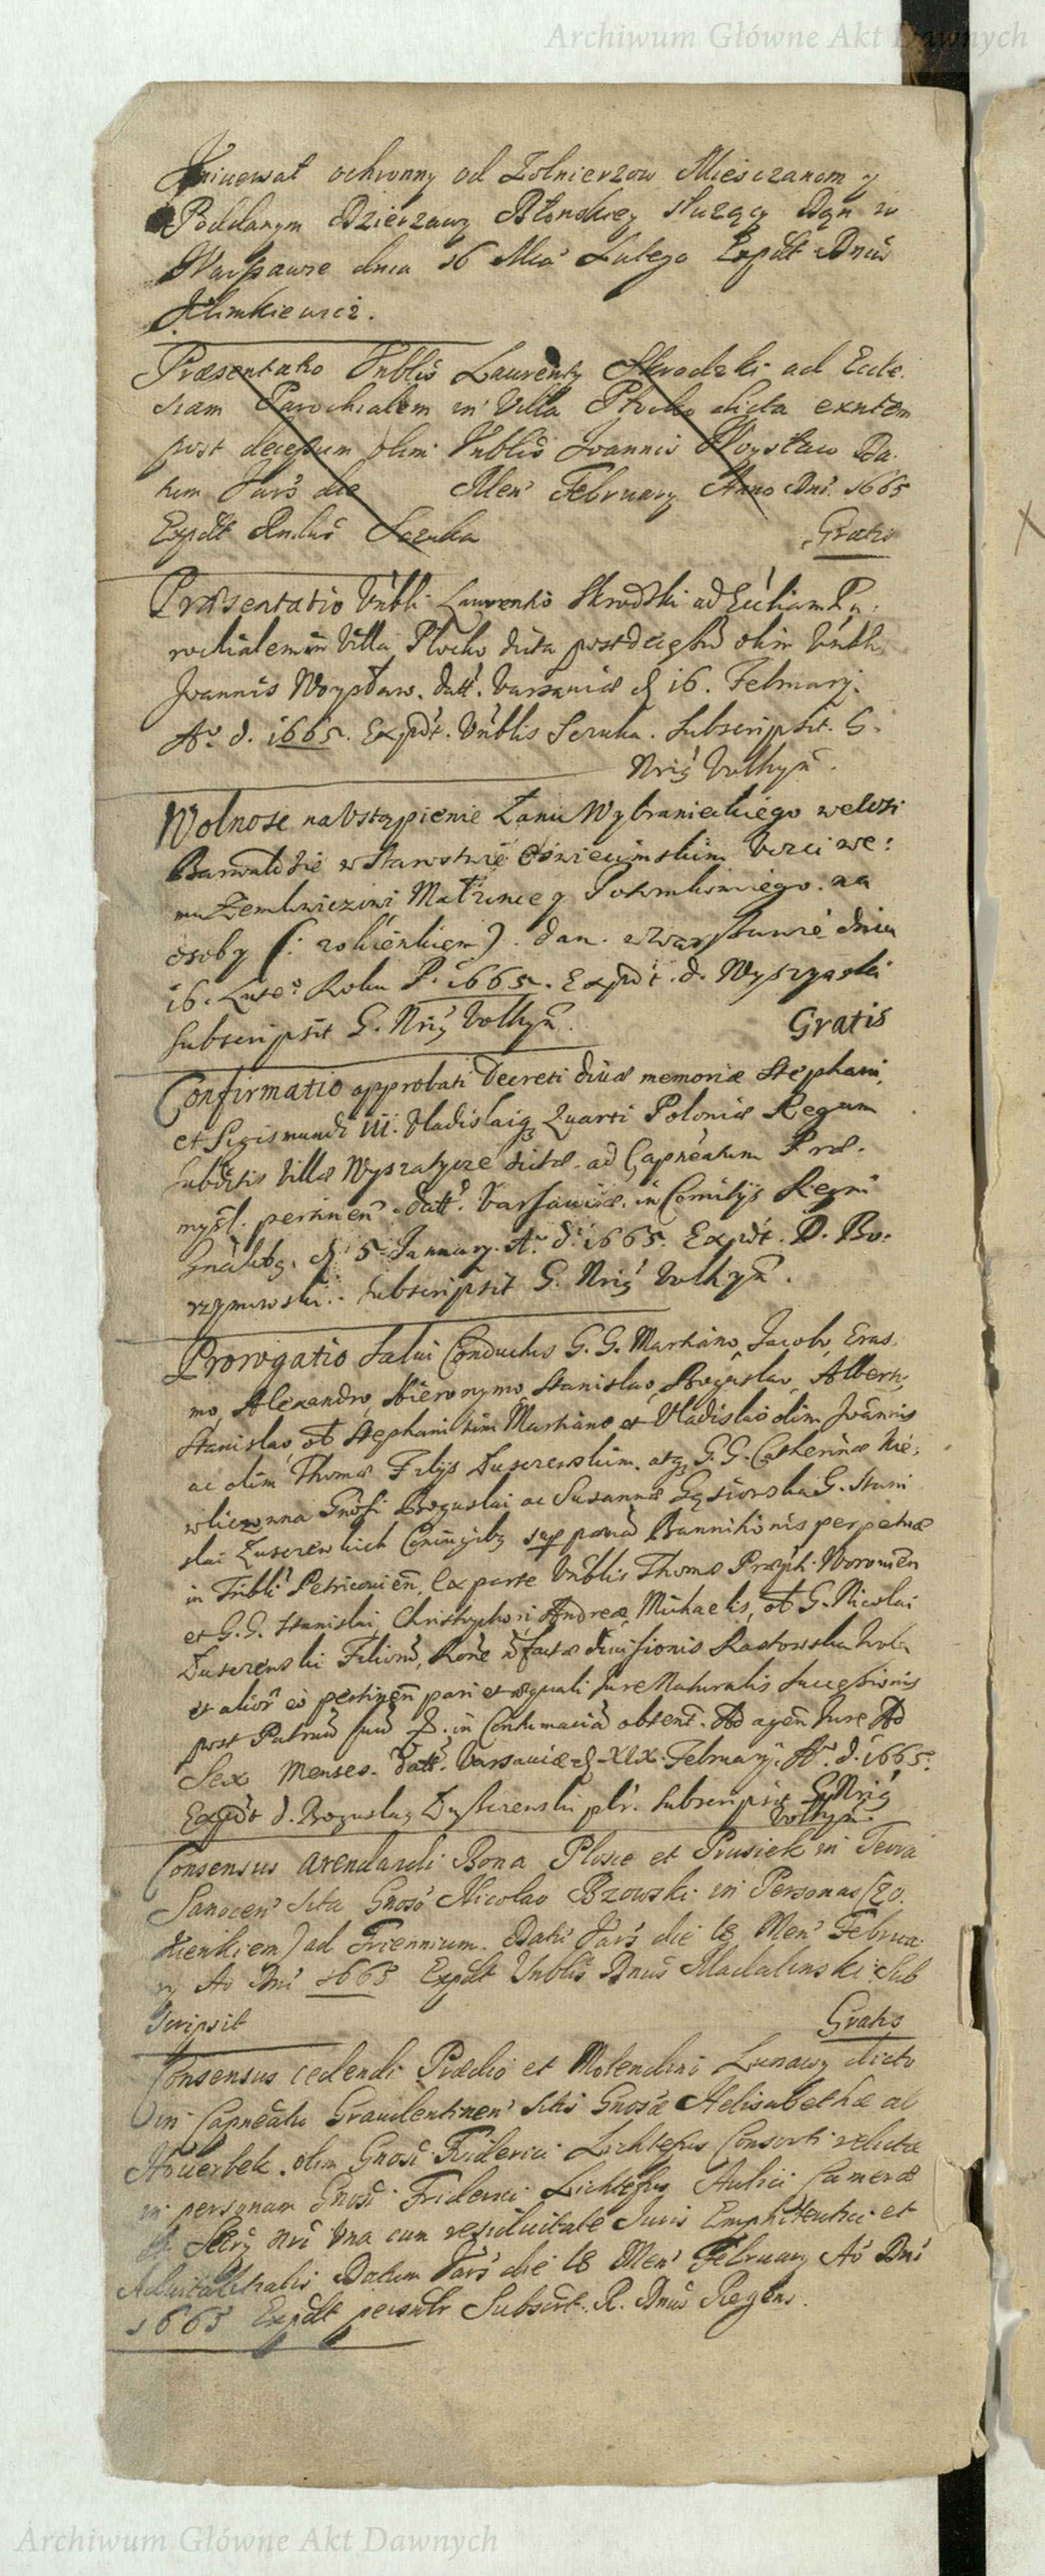 Archiwum Główne Akt Dawnych
Uniuersał ochronny od Zołnierzow Miesczanom y
Poddanym Dzierzawy Błonskiey słuzący Dan w
Warszawie dnia 16 Mca Lutego Expdt Dnus
Klimkiewicz.
Præsentatio Vnblis Laurenty Skrodzki ad Eccle:
siam Parochialem in Villa Płocko dicta exntem
post decessum olim Vnblis Joannis Woysław Da:
tum Vars die Mens February Anno Dni 1665
Expdt Szczuka Gratis
Præsentatio Vnbli Laurentio Skrodzki ad Eccliam Pa:
rochialem in Villa Płocko dicta post decessu olim Vnbli
Joannis Woysław. datt. Varsauiæ d 16. February.
Ao. d. 1665. Expdt. Vnblis Sczuka. Subscripsit. S.
Nris Volhyn.
Wolnosc na Vstąpienie Łanu Wybranieckiego we Wsi
Barwałdzie w Starostwie Oswiecimskim Vczciwe:
mu na
osoby (: zo kięnkiem). dan. w Warszawie dnia
16. Lute: Roku P. 1665. Expdt. d. Wyszynski
Subscripsit S. Nris Volhyn. Gratis
Confirmatio approbati Decreti diuæ memoriæ Stephani,
et Sigismundi III. Vladislaiq Quarti Poloniæ Regum
Subditis Villæ Wyszatycze dictæ. ad Capneatum Præ:
mysl. pertinen. datt. Varsauiæ. in Comitijs Regni
Gnalibq. d 5 January. Ao. d. 1665. Expdt. D. Bo:
rzymowski. Subscripsit S. Nris Volhyn.
Prorogatio Salui Conductus G. G. Martiano, Jacobo, Eras:
mo, Alexandro, Hieronymo, Stanislao, Boguslao, Alberto,
Stanislao, et Stephani tum Martiano et Vladislao olim Joannis
ac olim Thomæ Filijs Duszewskim. atq. G. G. Catherinæ Nie:
Gnosi Boguslai ac Susannæ Gąsiorska G. Stani
slai Coniugibq pœna Bannitionis perpetuæ
in Tribli Petricouien, Ex parte Vnblis Thomæ
et G. G. Stanislai, Christophori, Andreæ, Michaelis, et G. Nicolai
Filioru, Rone factæ diuisionis Radowska Wola
et alior eo pertinen pari et æquali Jure Naturalis Successionis
post Patruu suu in Contumacia obtent. Ad agen Jure Ad
Sex Menses. Datt. Varsauiæ d XIX. February. Ao. d. 1665.
Expdt d. Boguslaq plr. Subscripsit S. Nris
Volhyn.
Consensus arendandi Bona Plosce et Prusiek in Terra
Sanocen sita Gnoso Nicolao Bzowski in Personas (zo
kienkiem) ad Triennium. Datt Vars die 18 Mens Februa
ry Ao Dni 1665 Expdt Vnblis Dnus Madalinski Sub
scripsit Gratis
Consensus cedendi Prædio et Molendino Lunawy dicto
in Capneatu Graudentinen sitis Gnosæ Helisabethæ ab
olim Gnosi Friderici Consorti relictæ
in personam Gnosi Friderici Aulici Cameræ
et Secry Nri Vna cum residuitate Juris Emphiteutici et
Aduitalitialis Datum Vars die 18 Mens February Ao Dni
1665 Expdt Subscrt. R. Dnus Regens.
Archiwum Główne Akt Dawnych